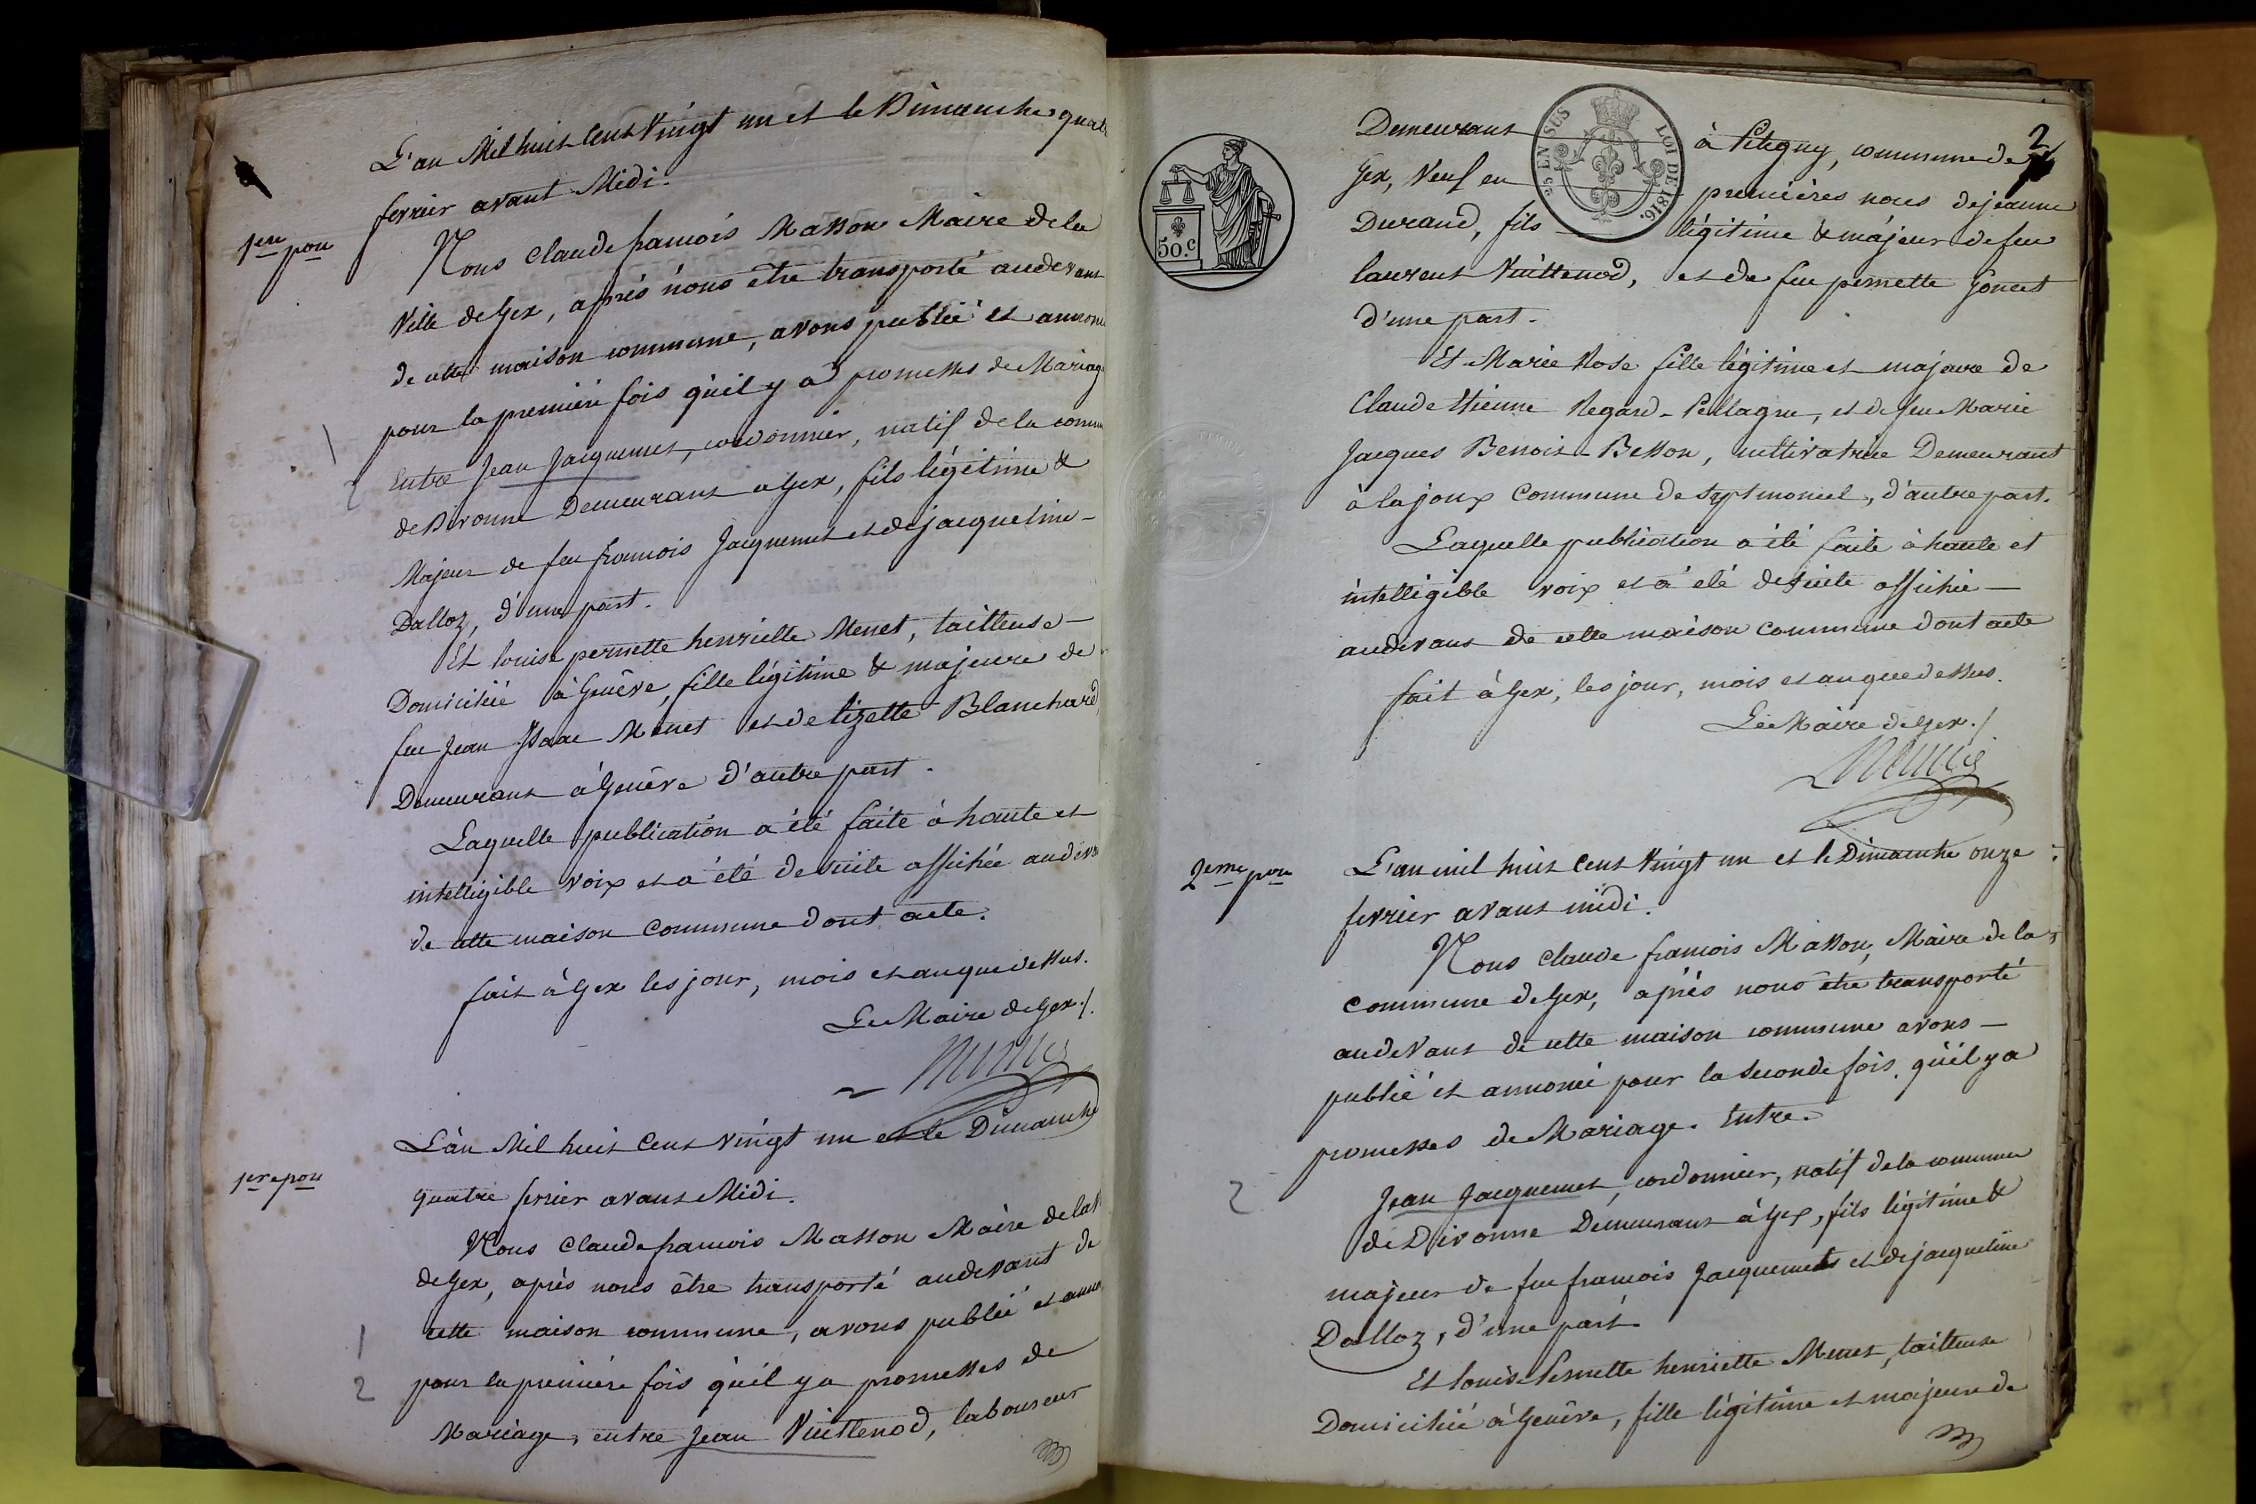 L'an Mil huit Cent Vingt un et le Dimanche quat
fevrier avant Midi.
1ere pon
Nous Claude françois Masson Maire de la
Ville de Gex, après nous être transporté audevant
de cette maison commune, avons publié et annonc
pour la première fois qu'il y a promesses de Mariage
1
Entre Jean Jacquemet, cordonnier, natif de la comm
2
de Divonne Demeurant à Gex, fils légitime &
Majeur de feu françois Jacquemet et de jacqueline
Dalloz, d'une part.
Et louise pernette henriette Menet, tailleuse
Domiciliée à Genève, fille légitime & majeure de
feu Jean Isaac Menet et de lizette Blanchard,
Demeurant à Genève d'autre part.
Laquelle publication a été faite à haute et
intelligible voix et a été de suite affichée audeva
de cette maison commune dont acte.
fait à Gex les jour, mois et an que dessus.
Le Maire de Gex ./.
L'an Mil huit Cent vingt un et le Dimanche
1ere pon
quatre fevrier avant Midi.
Nous Claude francois Masson Maire de la V
de Gex, après nous être transporté audevant de
1
cette maison commune, avons publié et anno
2
pour la première fois qu'il y a promesses de
Mariage, entre Jean Vuittenod, laboureur
2
50.C
25 EN SUS LOI DE 1816.
Demeurant à Pitegny, commune de
Gex, Veuf en premières noces de jeanne
Durand, fils légitime & majeur de feu
laurent Vuittenod, et de feu pernette Goncet
d'une part.
Et Marie Rose fille légitime et majeure de
Claude Etienne Regard-Pellagru, et de feu Marie
Jacques Benoit-Besson, cultivatrice Demeurant
à la joux Commune de Septmoncel, d'autre part.
Laquelle publication a été faite à haute et
intelligible voix et a été de suite affichée
audevant de cette maison commune dont acte
fait à Gex, les jour, mois et an que dessus.
Le Maire de Gex ./
2eme pon
L'an mil huit Cent Vingt un et le Dimanche onze
fevrier avant midi.
Nous Claude francois Masson, Maire de la
Commune de Gex, après nous être transporté
audevant de cette maison commune avons
publié et annoncé pour la seconde fois, qu'il y a
promesses de Mariage. Entre.
2
Jean Jacquemet, cordonnier, natif de la commune
de Divonne Demeurant à Gex, fils légitime &
majeur de feu francois Jacquemet et de jacqueline
Dalloz, d'une part.
Et louise Pernette henriette Menet, tailleuse
Domiciliée à Genève, fille légitime et majeure de